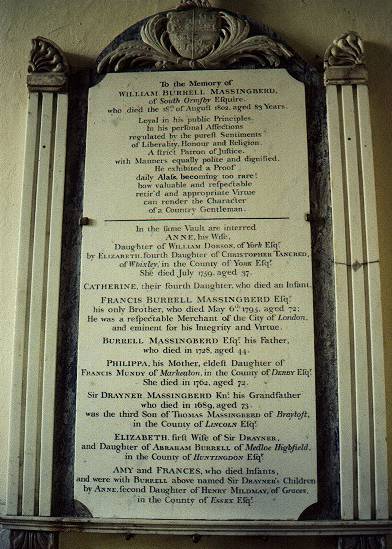 To the Memory of
WILLIAM BURRELL MASSINGBERD,
of South Ormsby Esquire.
who died the 18th of August 1802. aged 83 Years.
Loyal in his public Principles.
In his personal Affections
regulated by the purest Sentiments
of Liberality, Honour and Religion.
A strict Patron of Justice,
with Manners equally polite and dignified.
He exhibited a Proof
daily Alas! becoming too rare!
how valuable and respectable
retir'd and appropriate Virtue
can render the Character
of a Country Gentleman.
In the same Vault are interred
ANNE, his Wife,
Daughter of WILLIAM DOBSON, of York Esqr.
by ELIZABETH, fourth Daughter of CHRISTOPHER TANCRED,
of Whixley, in the County of YORK Esqr.
She died July 1759. aged 37.
CATHERINE, their fourth Daughter, who died an Infant.
FRANCIS BURRELL MASSINGBERD Esqr.
his only Brother, who died May 6th 1795. aged 72;
He was a respectable Merchant of the City of London,
and eminent for his Integrity and Virtue.
BURRELL MASSINGBERD Esqr. his Father,
who died in 1728, aged 44.
PHILIPPA, his Mother, eldest Daughter of
FRANCIS MUNDY of Markeaton, in the County of DERBY Esqr.
She died in 1762, aged 72.
Sir DRAYNER MASSINGBERD Knt. his Grandfather
who died in 1689, aged 73.
was the third Son of THOMAS MASSINGBERD of Braytoft,
in the County of LINCOLN Esqr.
ELIZABETH, first Wife of Sir DRAYNER,
and Daughter of ABRAHAM BURRELL of Medloe Highfield,
in the County of HUNTINGDON Esqr.
AMY and FRANCES, who died Infants,
and were with BURRELL above named Sir DRAYNER'S Children
by ANNE, second Daughter of HENRY MILDMAY, of Graces,
in the County of ESSEX Esqr.